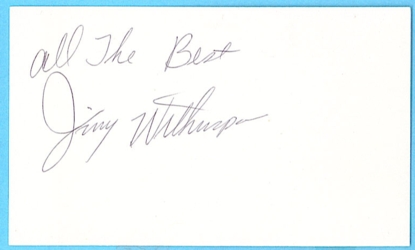 All The Best
Jimy